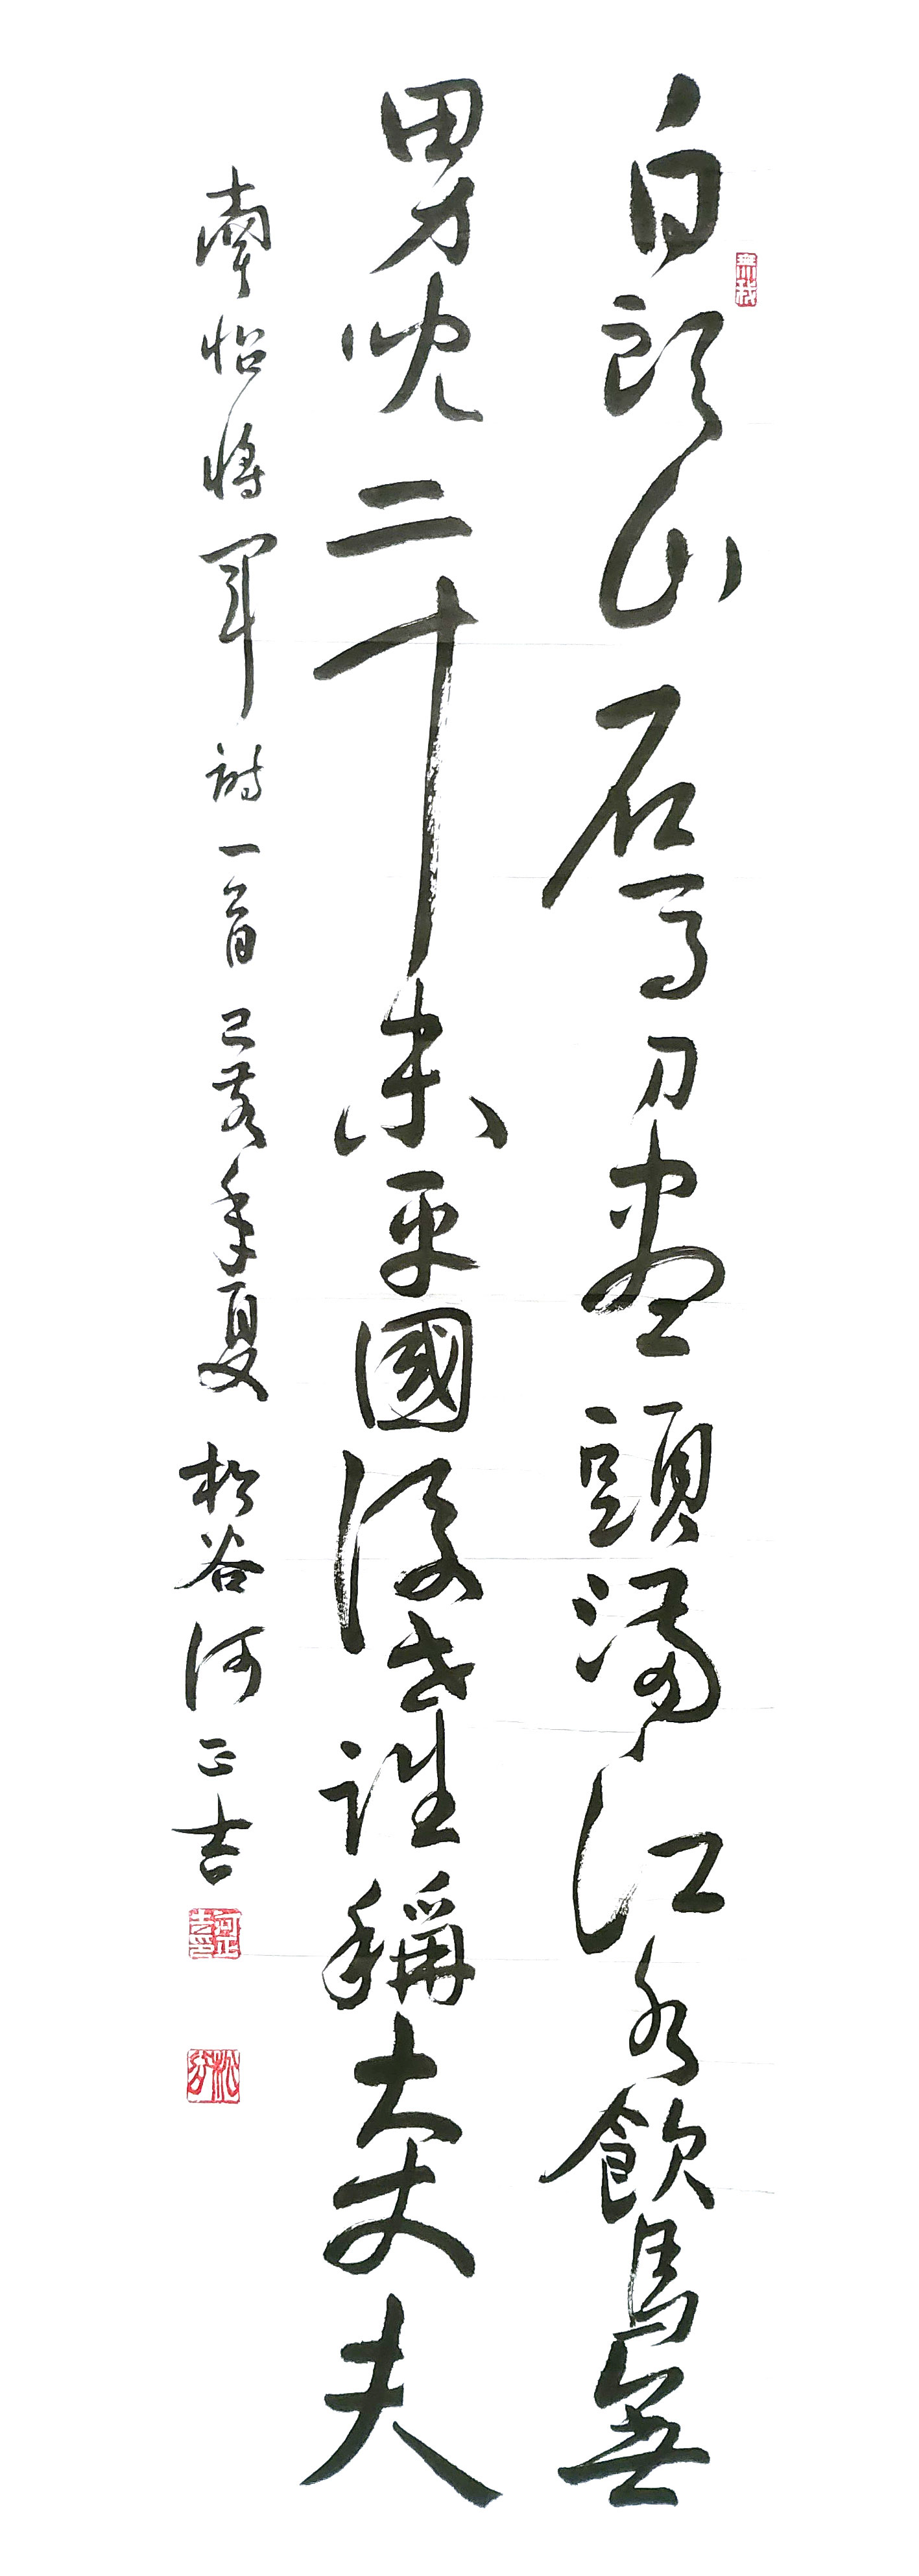 無我
白頭山石磨刀盡頭滿江水飲馬無
男兒二十未平國後世誰稱大丈夫
南怡將軍詩一首 己亥年夏 松谷 河正吉
河正吉印
松谷